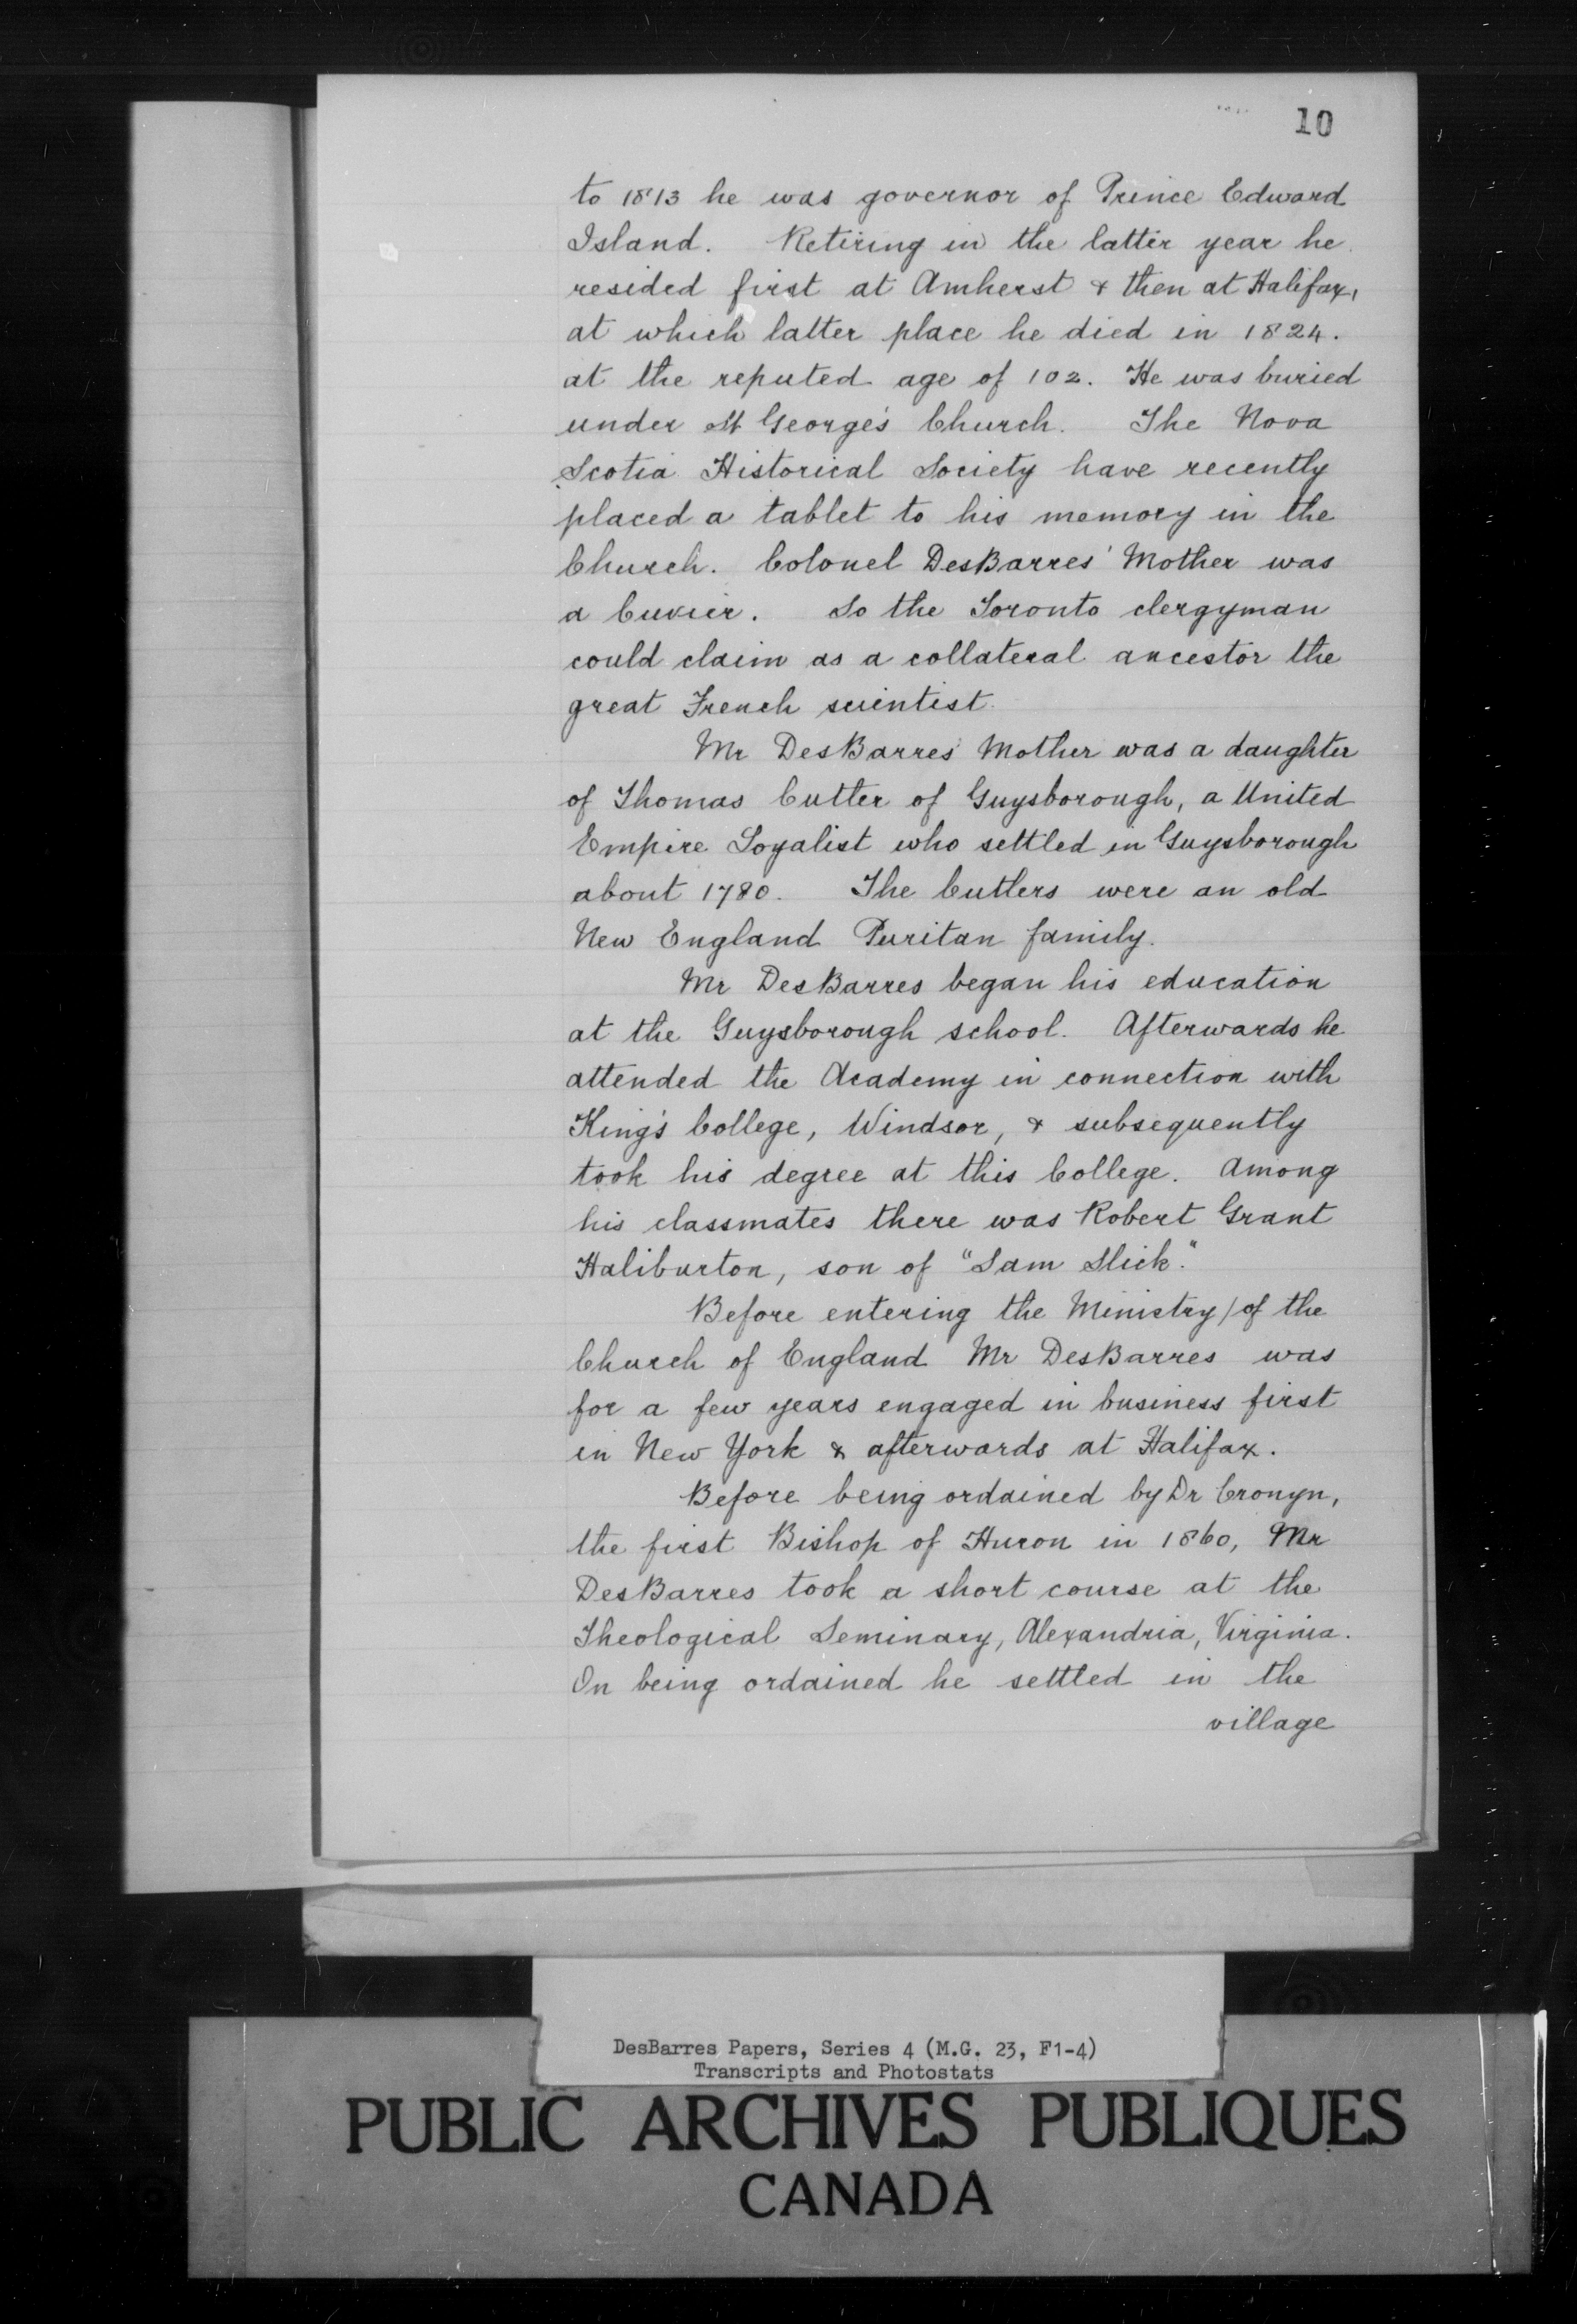 10
to 1813 he was governor of Prince Edward
Island. Retiring in the latter year he
resided first at Amherst & then at Halifax,
at which latter place he died in 1824.
at the reputed age of 102. He was buried
under St George's Church. The Nova
Scotia Historical Society have recently
placed a tablet to his memory in the
Church. Colonel DesBarres' Mother was
a Cuvier. So the Toronto clergyman
could claim as a collateral ancestor the
great French scientist.
Mr DesBarres' Mother was a daughter
of Thomas Cutler of Guysborough, a United
Empire Loyalist who settled in Guysborough
about 1780. The Cutlers were an old
New England Puritan family.
Mr DesBarres began his education
at the Guysborough school. Afterwards he
attended the Academy in connection with
King's College, Windsor, & subsequently
took his degree at this College. Among
his classmates there was Robert Grant
Haliburton, son of "Sam Slick."
Before entering the Ministry / of the
Church of England Mr DesBarres was
for a few years engaged in business first
in New York & afterwards at Halifax.
Before being ordained by Dr Cronyn,
the first Bishop of Huron in 1860, Mr
DesBarres took a short course at the
Theological Seminary, Alexandria, Virginia.
On being ordained he settled in the
village
DesBarres Papers, Series 4 (M.G. 23, F1-4)
Transcripts and Photostats
PUBLIC ARCHIVES PUBLIQUES
CANADA